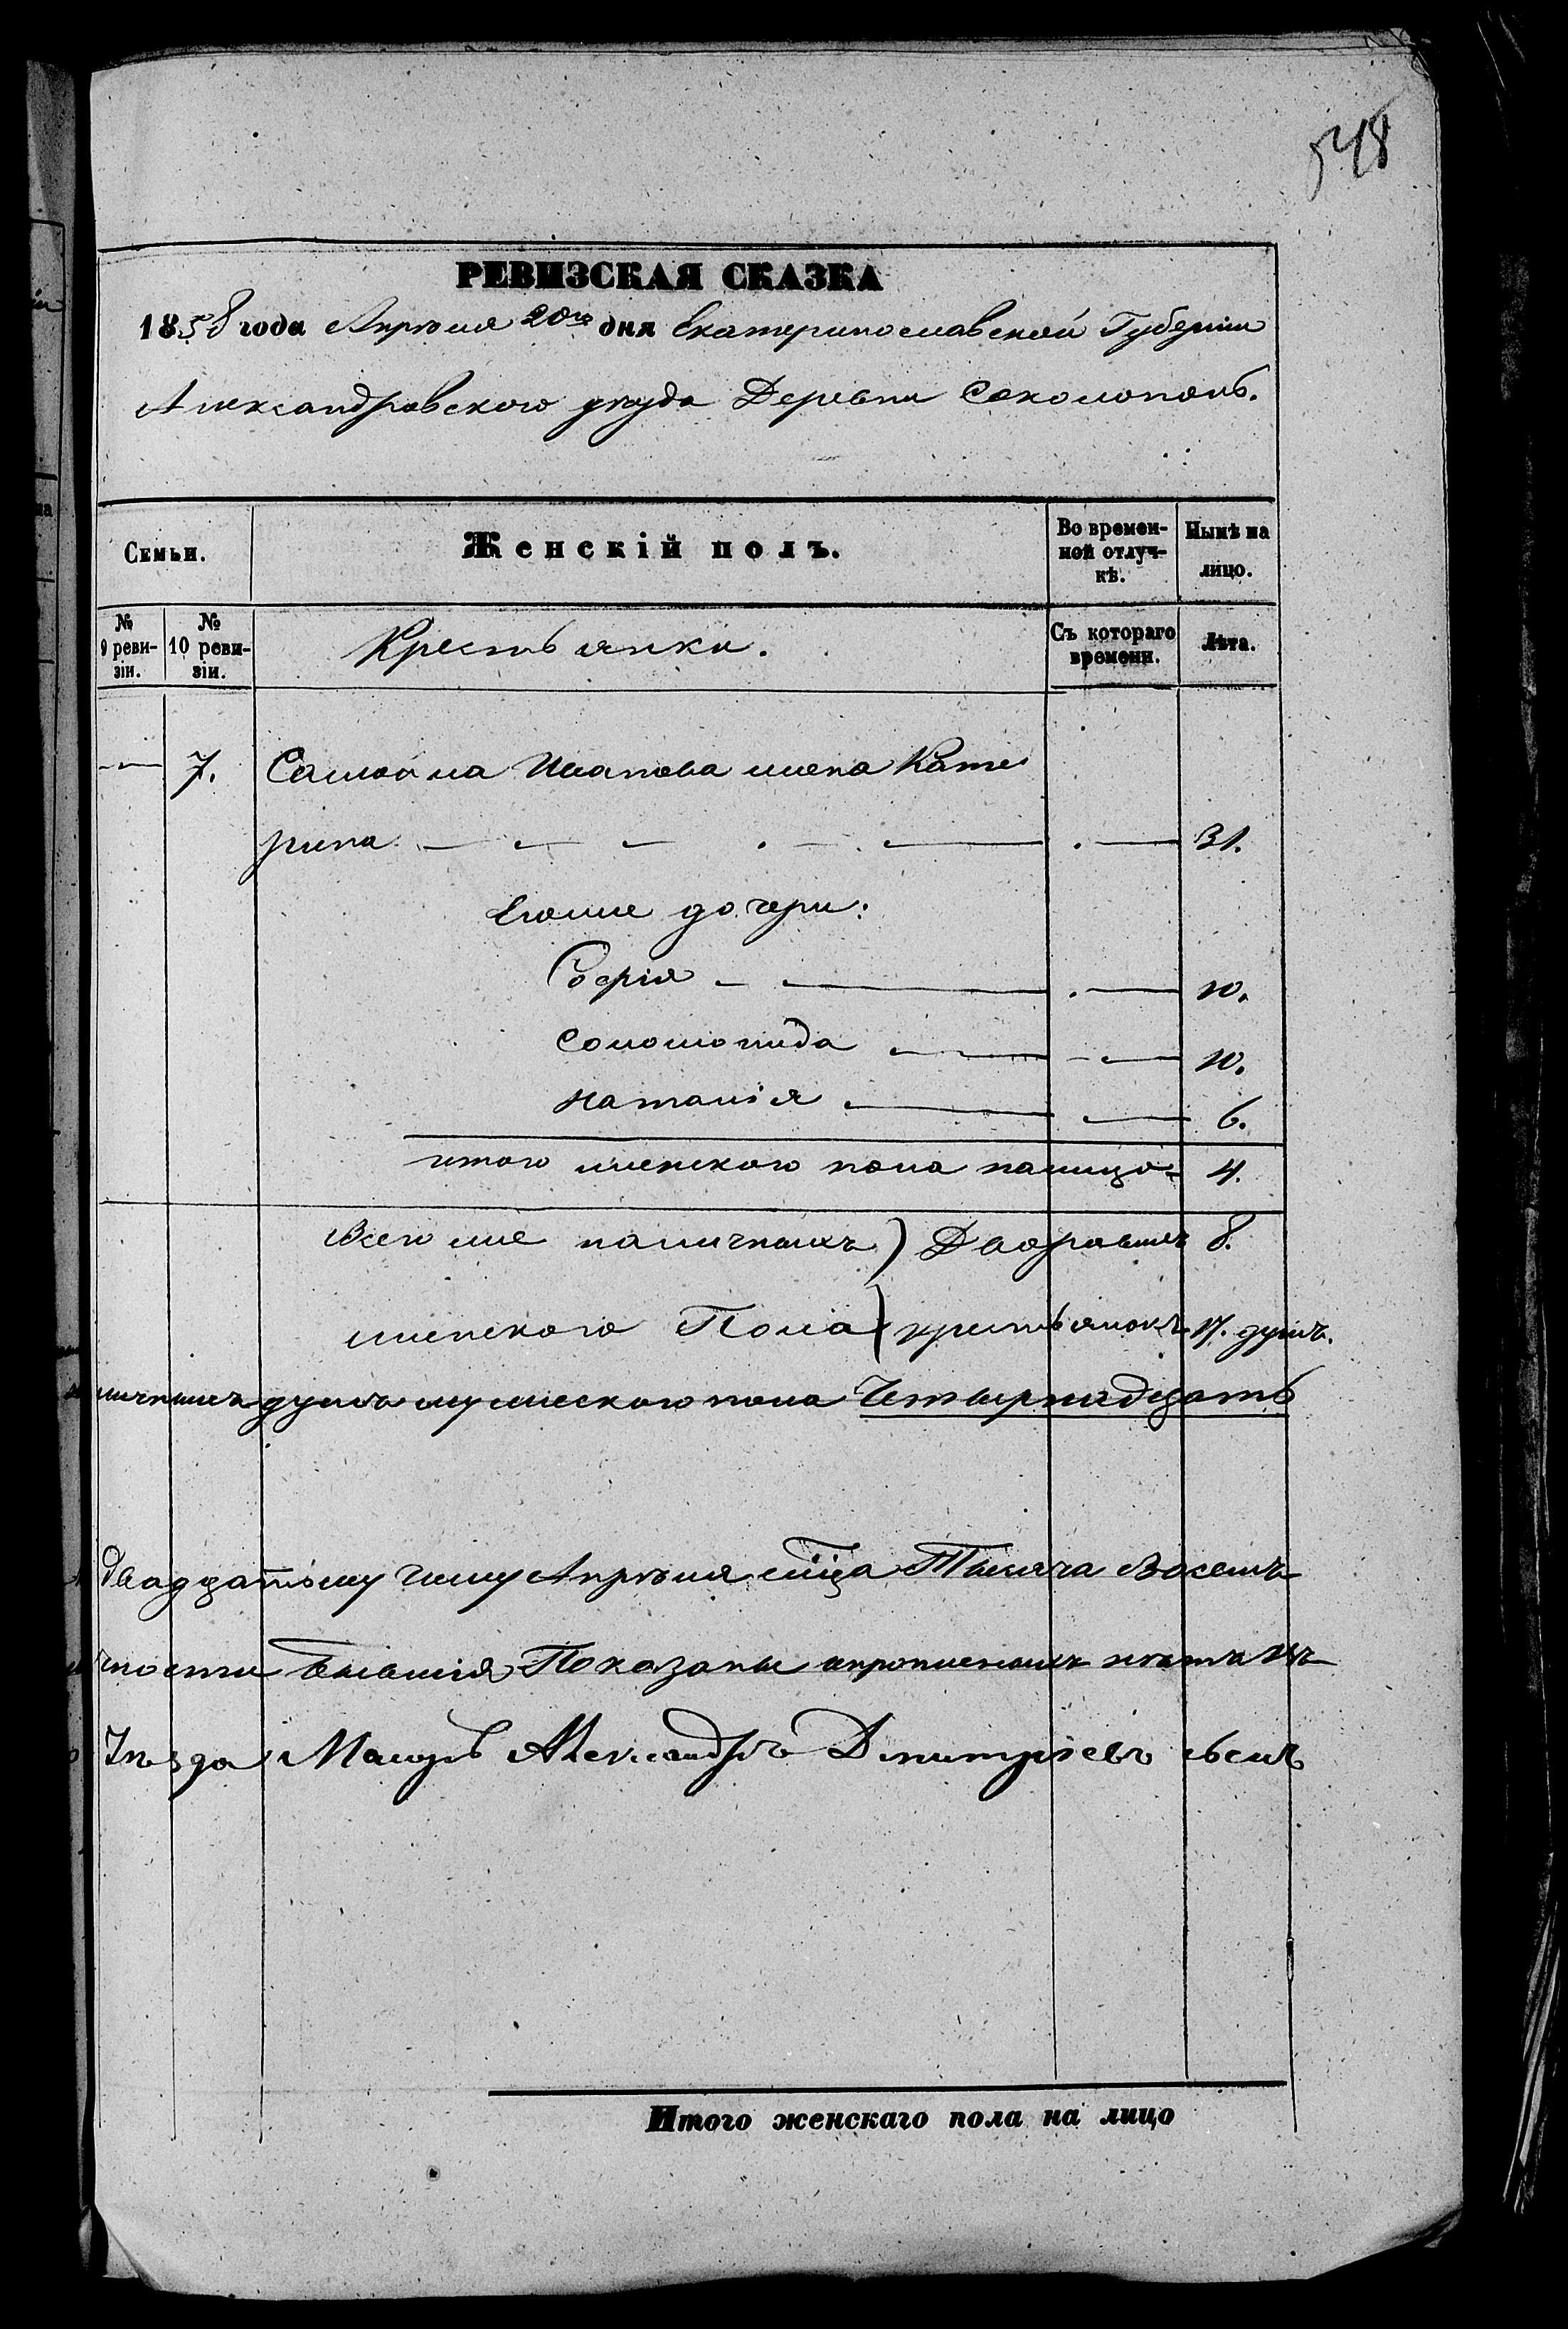 548
РЕВИЗСКАЯ СКАЗКА
1858 года Апрѣля 20го дня Екатеринославской Губерніи
Александровского уѣзда Деревни Соколополь.
Семьи.
Женскій полъ.
Во времен-
ной отлуч-
кѣ.
Нынѣ на
лицо.
№
9 реви-
зіи.
№
10 реви-
зіи.
Крестьянки.
Съ котораго
времени.
Лѣта.
7. Самойла Иванова жена Кате
рина 31.
Егоже дочери:
Софія 10.
Соломонида 10.
Наталія 6.
итого женского пола налицо 4.
Всего же наличныхъ ) Дворовыхъ 8.
женского Пола ) крестьянокъ 17. душъ.
душъ мужеского пола Четырнадцать
двадцатому числу Апрѣля мѣца Тысяча Восемъ
бывшія Показаны
Маіоръ Александръ Дмитріевъ сынъ
Итого женскаго пола на лицо